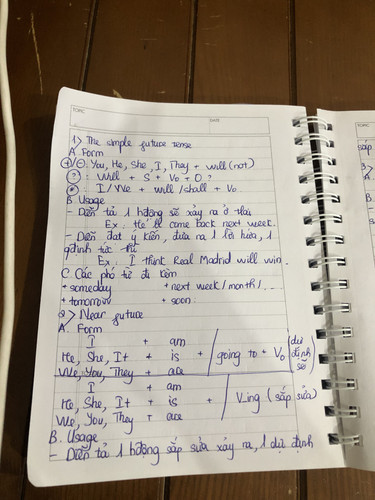 TOPIC
DATE
1> The simple future tense
A. Form
(+)(-): You, He, She, I, They + will (not)
(?): Will + S + Vo + O ?
(*): I/We + will/shall + Vo
B. Usage
- Diễn tả 1 hđộng sẽ xảy ra ở tlai
Ex: He'll come back next week.
- Diễn đạt ý kiến, đưa ra 1 lời hứa, 1
qđịnh tức thì
Ex: I think Real Madrid will win.
C. Các phó từ đi kèm
+ someday + next week/month/...
+ tomorrow + soon
2> Near future
A. Form
I + am
He, She, It + is + going to + Vo (dự định sẽ)
We, You, They + are
I + am
He, She, It + is + V_ing (sắp sửa)
We, You, They + are
B. Usage
- Diễn tả 1 hđộng sắp sửa xảy ra, 1 dự định
sắp
3>
A